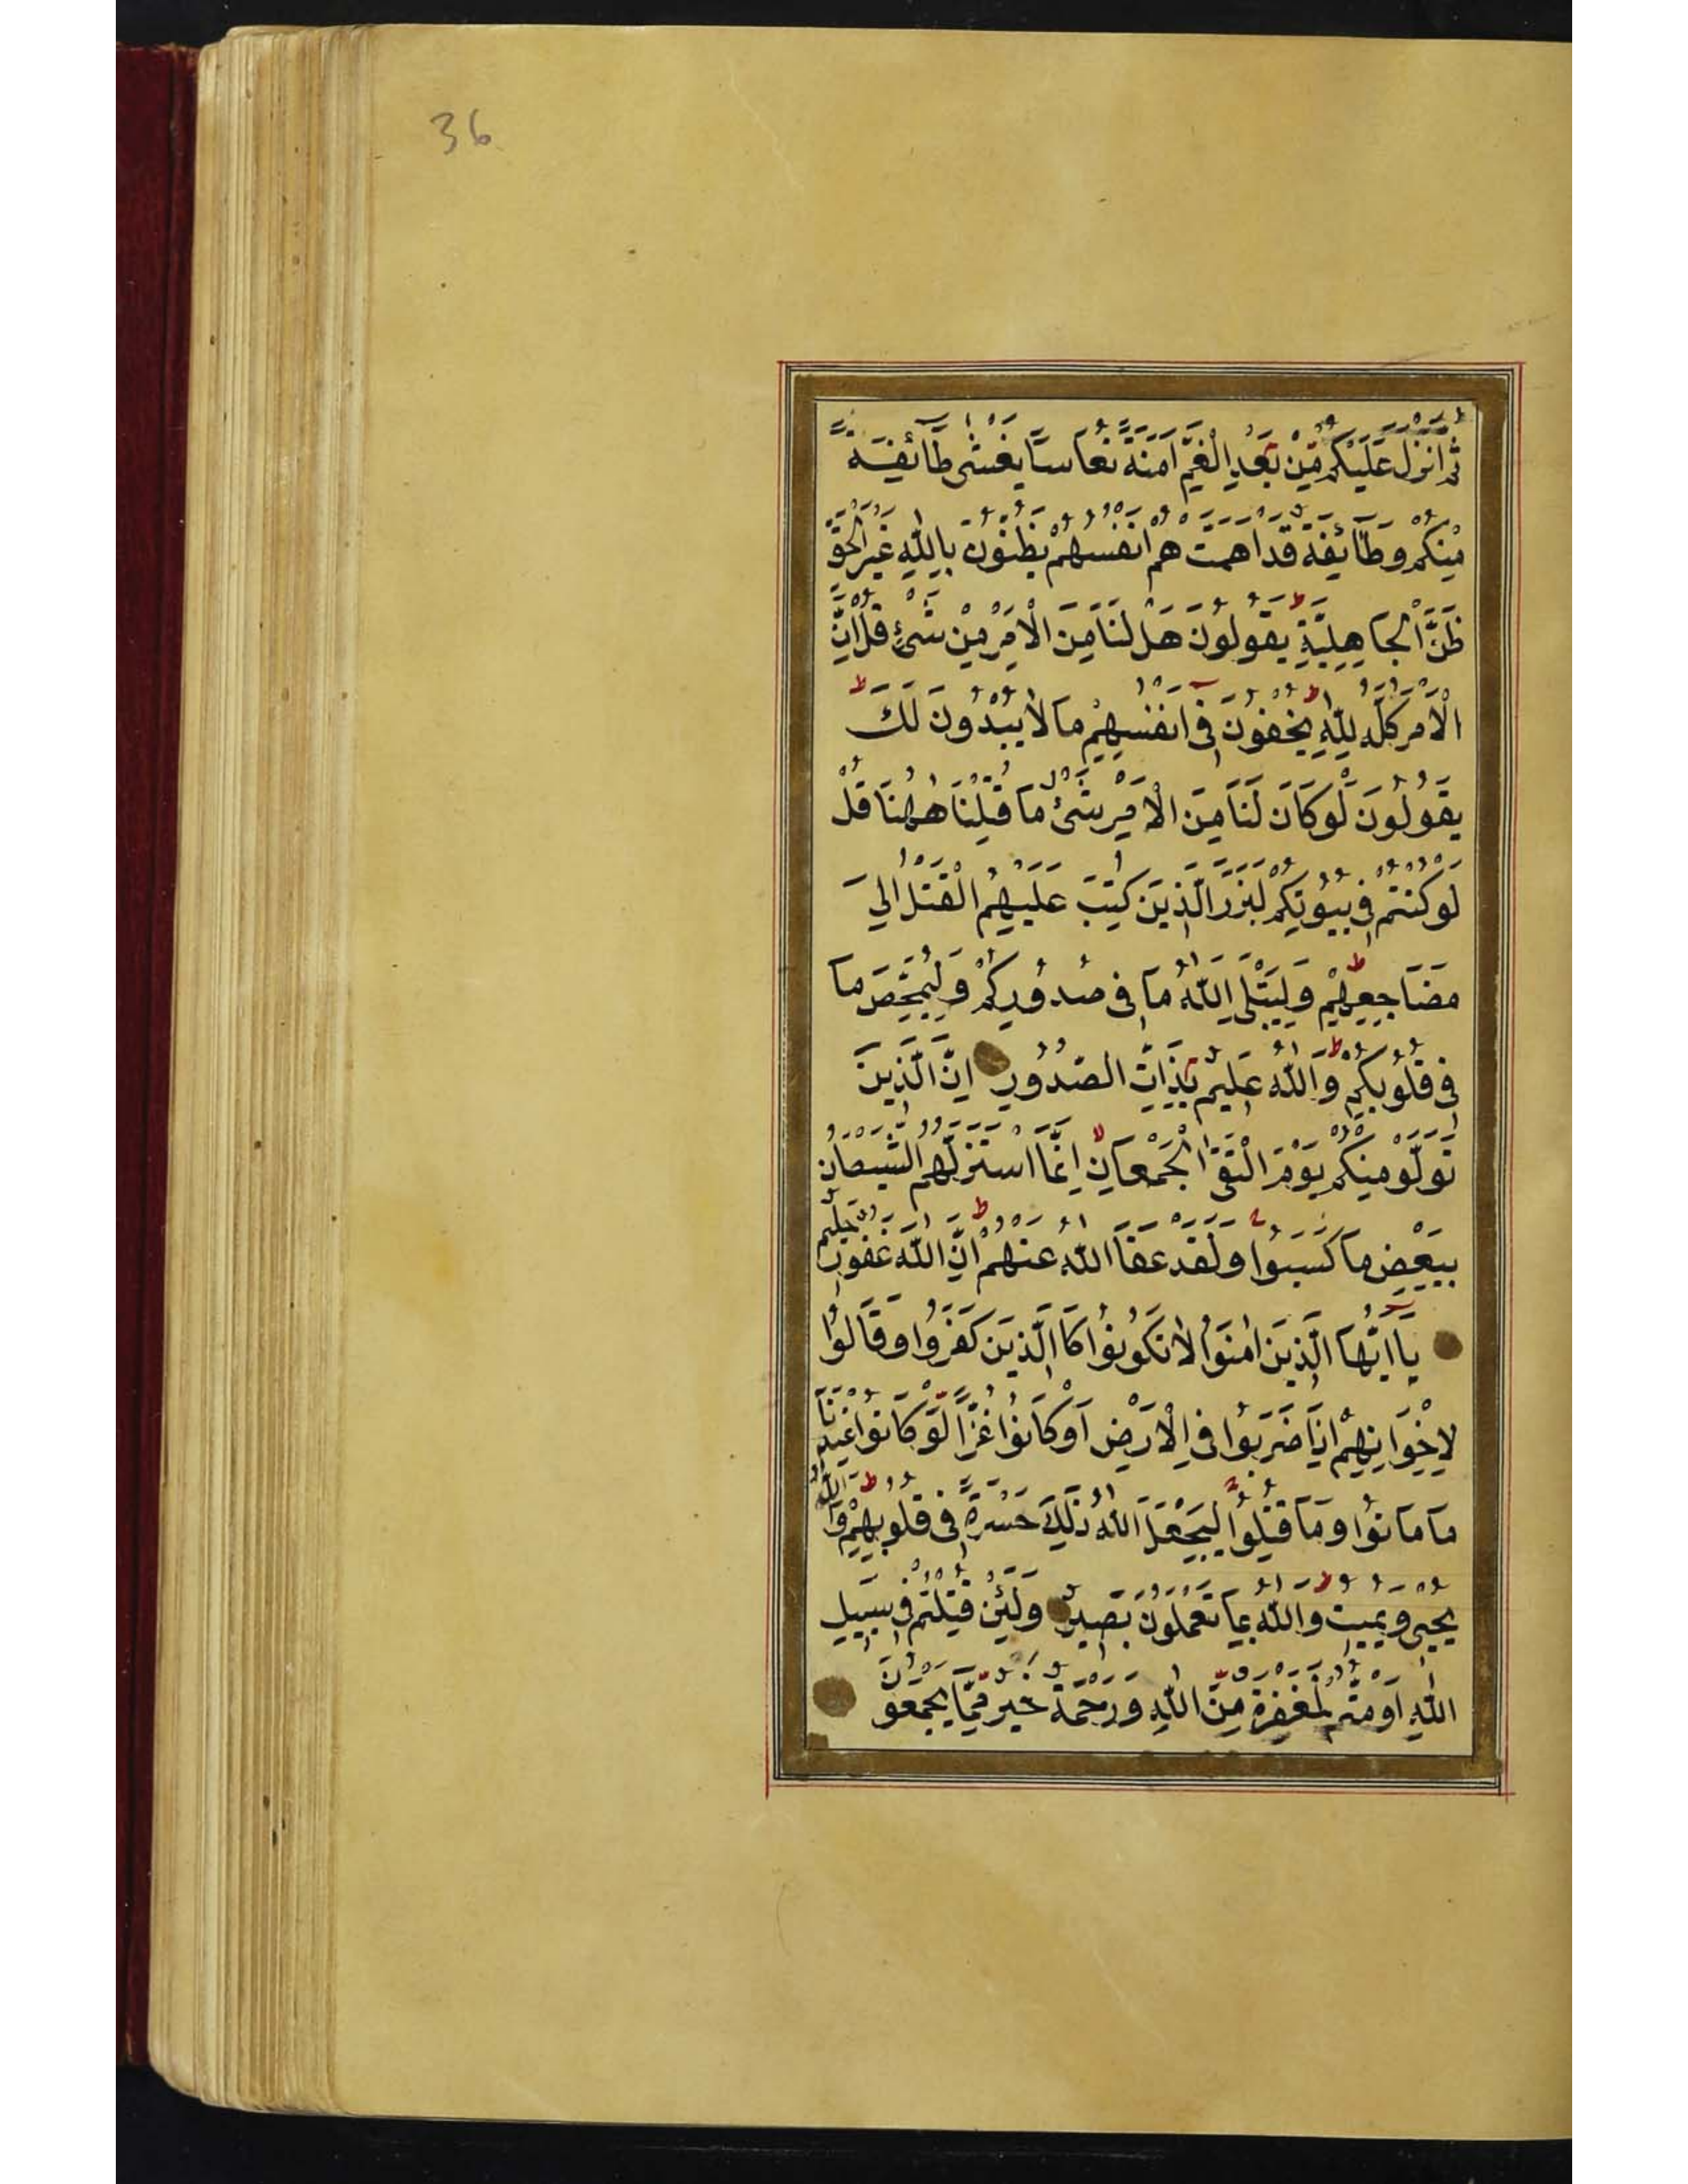 36
ثُمَّ اَنْزَلَ عَلَيْكُمْ مِّنْ بَعْدِ الْغَمِّ اَمَنَةً نُعَاسًا يَغْشٰى طَٓائِفَةً
مِنْكُمْ وَطَٓائِفَةٌ قَدْ اَهَمَّتْ هُمْ اَنْفُسُهُمْ يَظُنُّوْنَ بِاللّٰهِ غَيْرَ الْحَقِّ
ظَنَّ الْجَاهِلِيَّةِ يَقُولُوْنَ هَلْ لَنَا مِنَ الْاَمْرِ مِنْ شَىْءٍ قُلْ اِنَّ
الْاَمْرَ كُلَّهُ لِلّٰهِ يُخْفُوْنَ فٖى اَنْفُسِهِمْ مَا لَا يُبْدُوْنَ لَكَ
يَقُوْلُوْنَ لَوْ كَانَ لَنَا مِنَ الْاَمْرِ شَىْءٌ مَا قُتِلْنَا هٰهُنَا قُلْ
لَوْ كُنْتُمْ فٖى بُيُوْتِكُمْ لَبَرَزَ الَّذٖيْنَ كُتِبَ عَلَيْهِمُ الْقَتْلُ اِلٰى
مَضَاجِعِهِمْ وَلِيَبْتَلِىَ اللّٰهُ مَا فٖى صُدُوْرِكُمْ وَلِيُمَحِّصَ مَا
فٖى قُلُوْبِكُمْ وَاللّٰهُ عَلٖيْمٌ بِذَاتِ الصُّدُوْرِ اِنَّ الَّذٖيْنَ
تَوَلَّوْ مِنْكُمْ يَوْمَ الْتَقَى الْجَمْعَانِ اِنَّمَا اسْتَزَلَّهُمُ الشَّيْطَانُ
بِبَعْضِ مَا كَسَبُوْا وَلَقَدْ عَفَا اللّٰهُ عَنْهُمْ اِنَّ اللّٰهَ غَفُوْرٌ حَلٖيْمٌ
يَا اَيُّهَا الَّذٖيْنَ اٰمَنُوْا لَا تَكُوْنُوْا كَا الَّذٖيْنَ كَفَرُوْا وَقَالُوْا
لِاِخْوَانِهِمْ اِذَا ضَرَبُوْا فِى الْاَرْضِ اَوْ كَانُوْا غُزًّا لَّوْ كَانُوْا عِنْدَنَا
مَا مَاتُوْا وَمَا قُتِلُوْا لِيَجْعَلَ اللّٰهُ ذٰلِكَ حَسْرَةً فٖى قُلُوْبِهِمْ وَاللّٰهُ
يُحْيٖى وَيُمٖيْتُ وَاللّٰهُ بِمَا تَعْمَلُوْنَ بَصٖيْرٌ وَلَئِنْ قُتِلْتُمْ فٖى سَبٖيْلِ
اللّٰهِ اَوْ مُتُّمْ لَمَغْفِرَةٌ مِنَّ اللّٰهِ وَرَحْمَةٌ خَيْرٌ مِّمَّا يَجْمَعُوْنَ